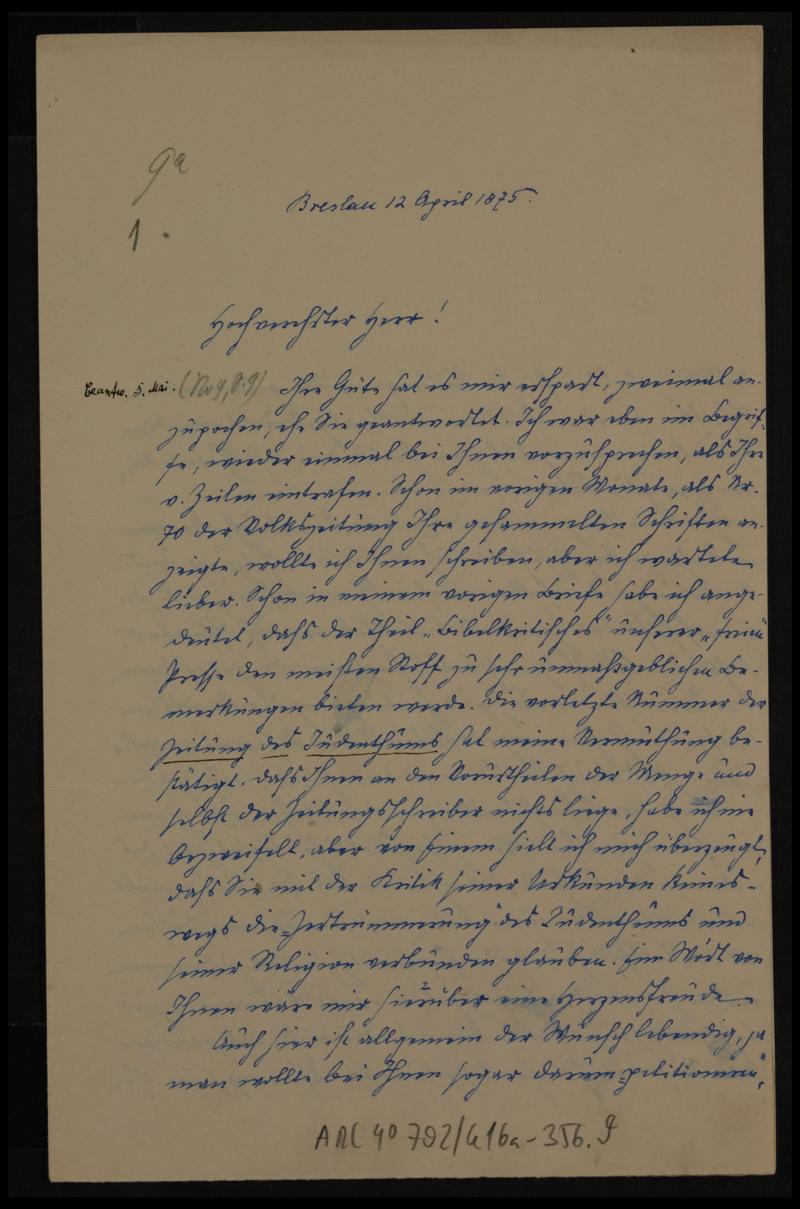 9a
1.
Breslau 12 April 1875.
Hochverehrter Herr!
Beantw. 5. Mai. (No 9, S. 9) Ihre Güte hat es mir erspart, zweimal an-
zupochen, ehe Sie geantwortet. Ich war eben im Begrif-
fe, wieder einmal bei Ihnen vorzusprechen, als Ihre
v. Zeilen eintrafen. Schon im vorigen Monate, als Nr.
70 der Volkszeitung Ihre gesammelten Schriften an-
zeigte, wollte ich Ihnen schreiben, aber ich wartete
lieber. Schon in meinem vorigen Briefe habe ich ange-
deutet, dass der Theil „Bibelkritisches" unserer „freien"
Presse den meisten Stoff zu sehr unmassgeblichen Be-
merkungen bieten werde. Die vorletzte Nummer der
Zeitung des Judenthums hat meine Vermuthung be-
stätigt. Dass Ihnen an den Vorurtheilen der Menge und
selbst der Zeitungsschreiber nichts liege, habe ich nie
bezweifelt, aber von Einem hielt ich mich überzeugt,
dass Sie mit der Kritik seiner Urkunden keines-
wegs die „Zertrümmerung" des Judenthums und
seiner Religion verbunden glauben. Ein Wort von
Ihnen wäre mir hierüber eine Herzensfreude.
Auch hier ist allgemein der Wunsch lebendig, ja
man wollte bei Ihnen sogar darum „petitioniren",
ARC 4° 792/G16a-356.9